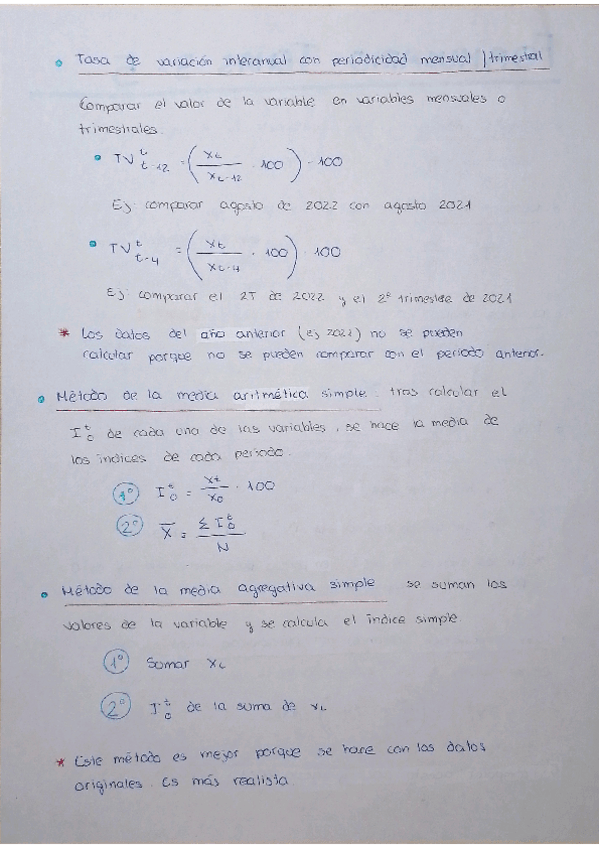 • Tasa de variación interanual con periodicidad mensual / trimestral
Comparar el valor de la variable en variables mensuales o
trimestrales.
• TV t t-12 = (xt / xt-12 · 100) - 100
Ej comparar agosto de 2022 con agosto 2021
• TV t t-4 = (xt / xt-4 · 100) - 100
Ej: comparar el 2T de 2022 y el 2º trimestre de 2021
* Los datos del año anterior (ej 2021) no se pueden
calcular porque no se pueden comparar con el periodo anterior.
• Método de la media aritmética simple. tras calcular el
I t 0 de cada una de las variables, se hace la media de
los índices de cada periodo.
1º I t 0 = xt / x0 · 100
2º X̄ = Σ I t 0 / N
• Método de la media agregativa simple se suman los
valores de la variable y se calcula el índice simple.
1º Sumar xi
2º I t 0 de la suma de xi
* Este método es mejor porque se hace con los datos
originales. Es más realista